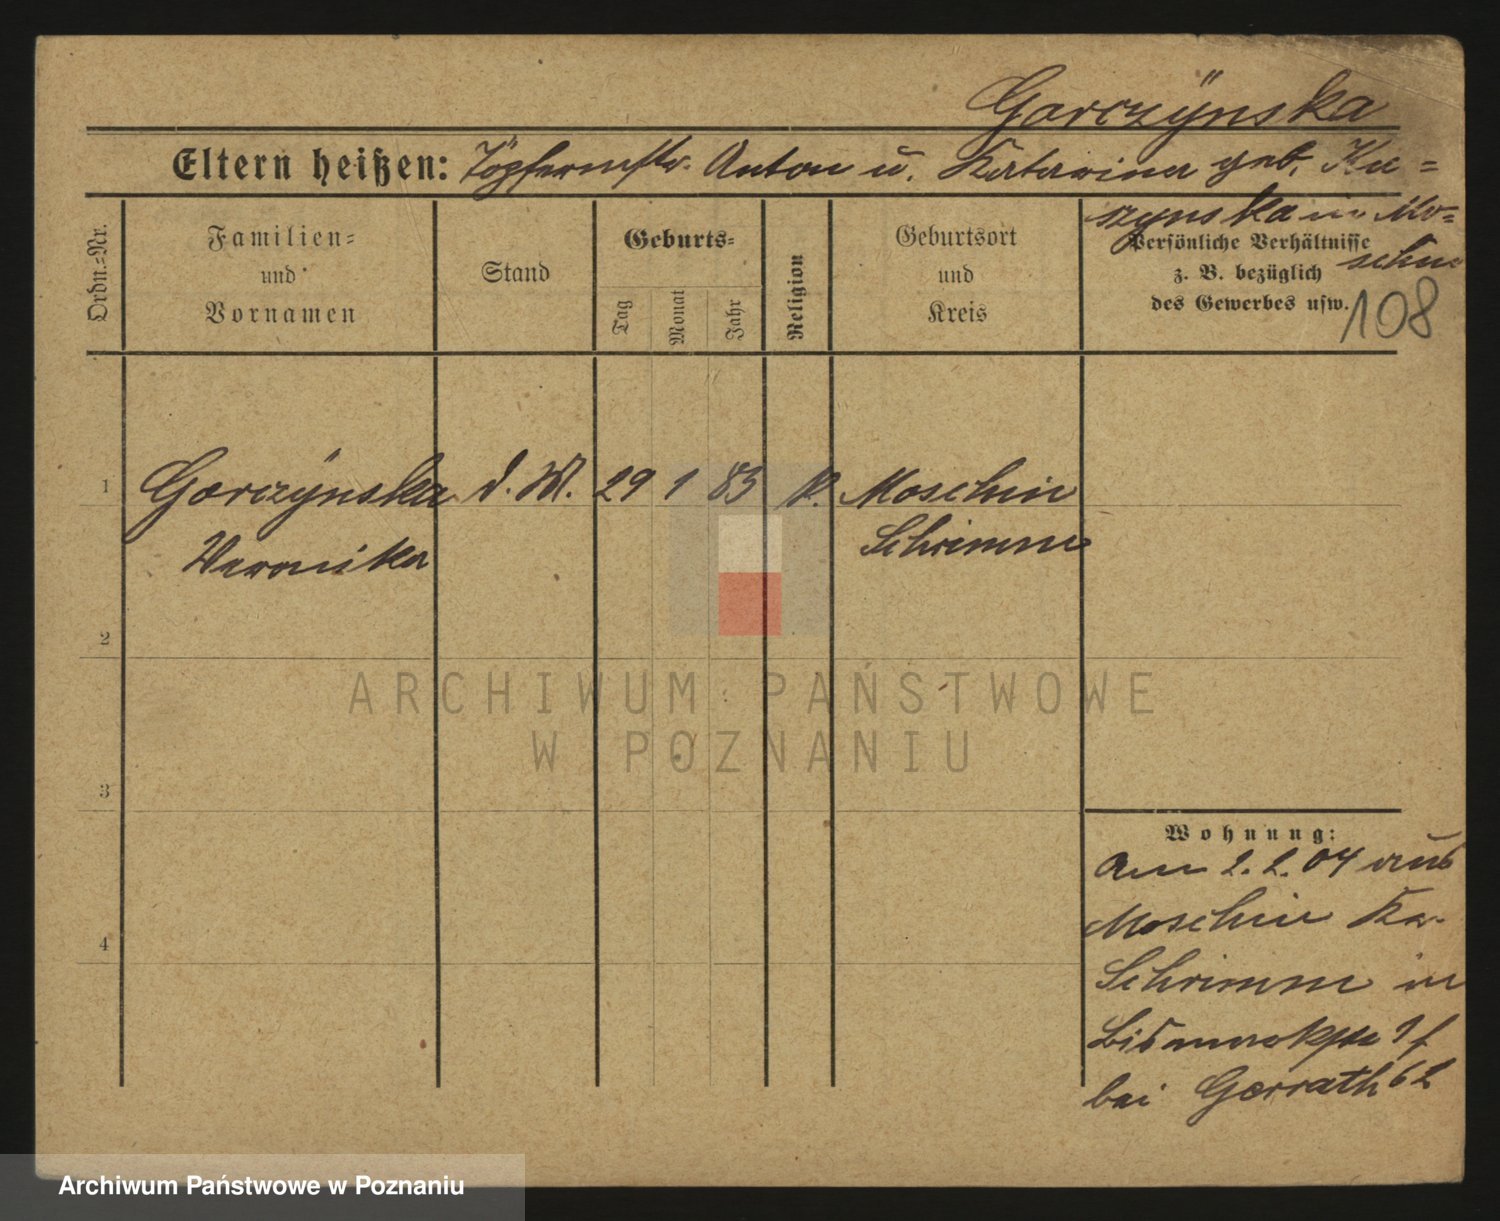 Garczÿnska
Eltern heißen: Töpfermstr. Anton u. Katarina geb. Ku=
szynska in Mo=
schin
108
Ordn.-Nr.
Familien=
und
Vornamen
Stand
Geburts=
Tag
Monat
Jahr
Religion
Geburtsort
und
Kreis
Persönliche Verhältnisse
z. B. bezüglich
des Gewerbes usw.
1 Garczÿnska d. M. 29 1 83 k. Moschin
Veronika Schrimm
2
3
4
ARCHIWUM PAŃSTWOWE
W POZNANIU
Wohnung:
Am 2. 2. 04 aus
Moschin Kr.
Schrimm in
Bismarckstr
bei Gerrath 62
Archiwum Państwowe w Poznaniu